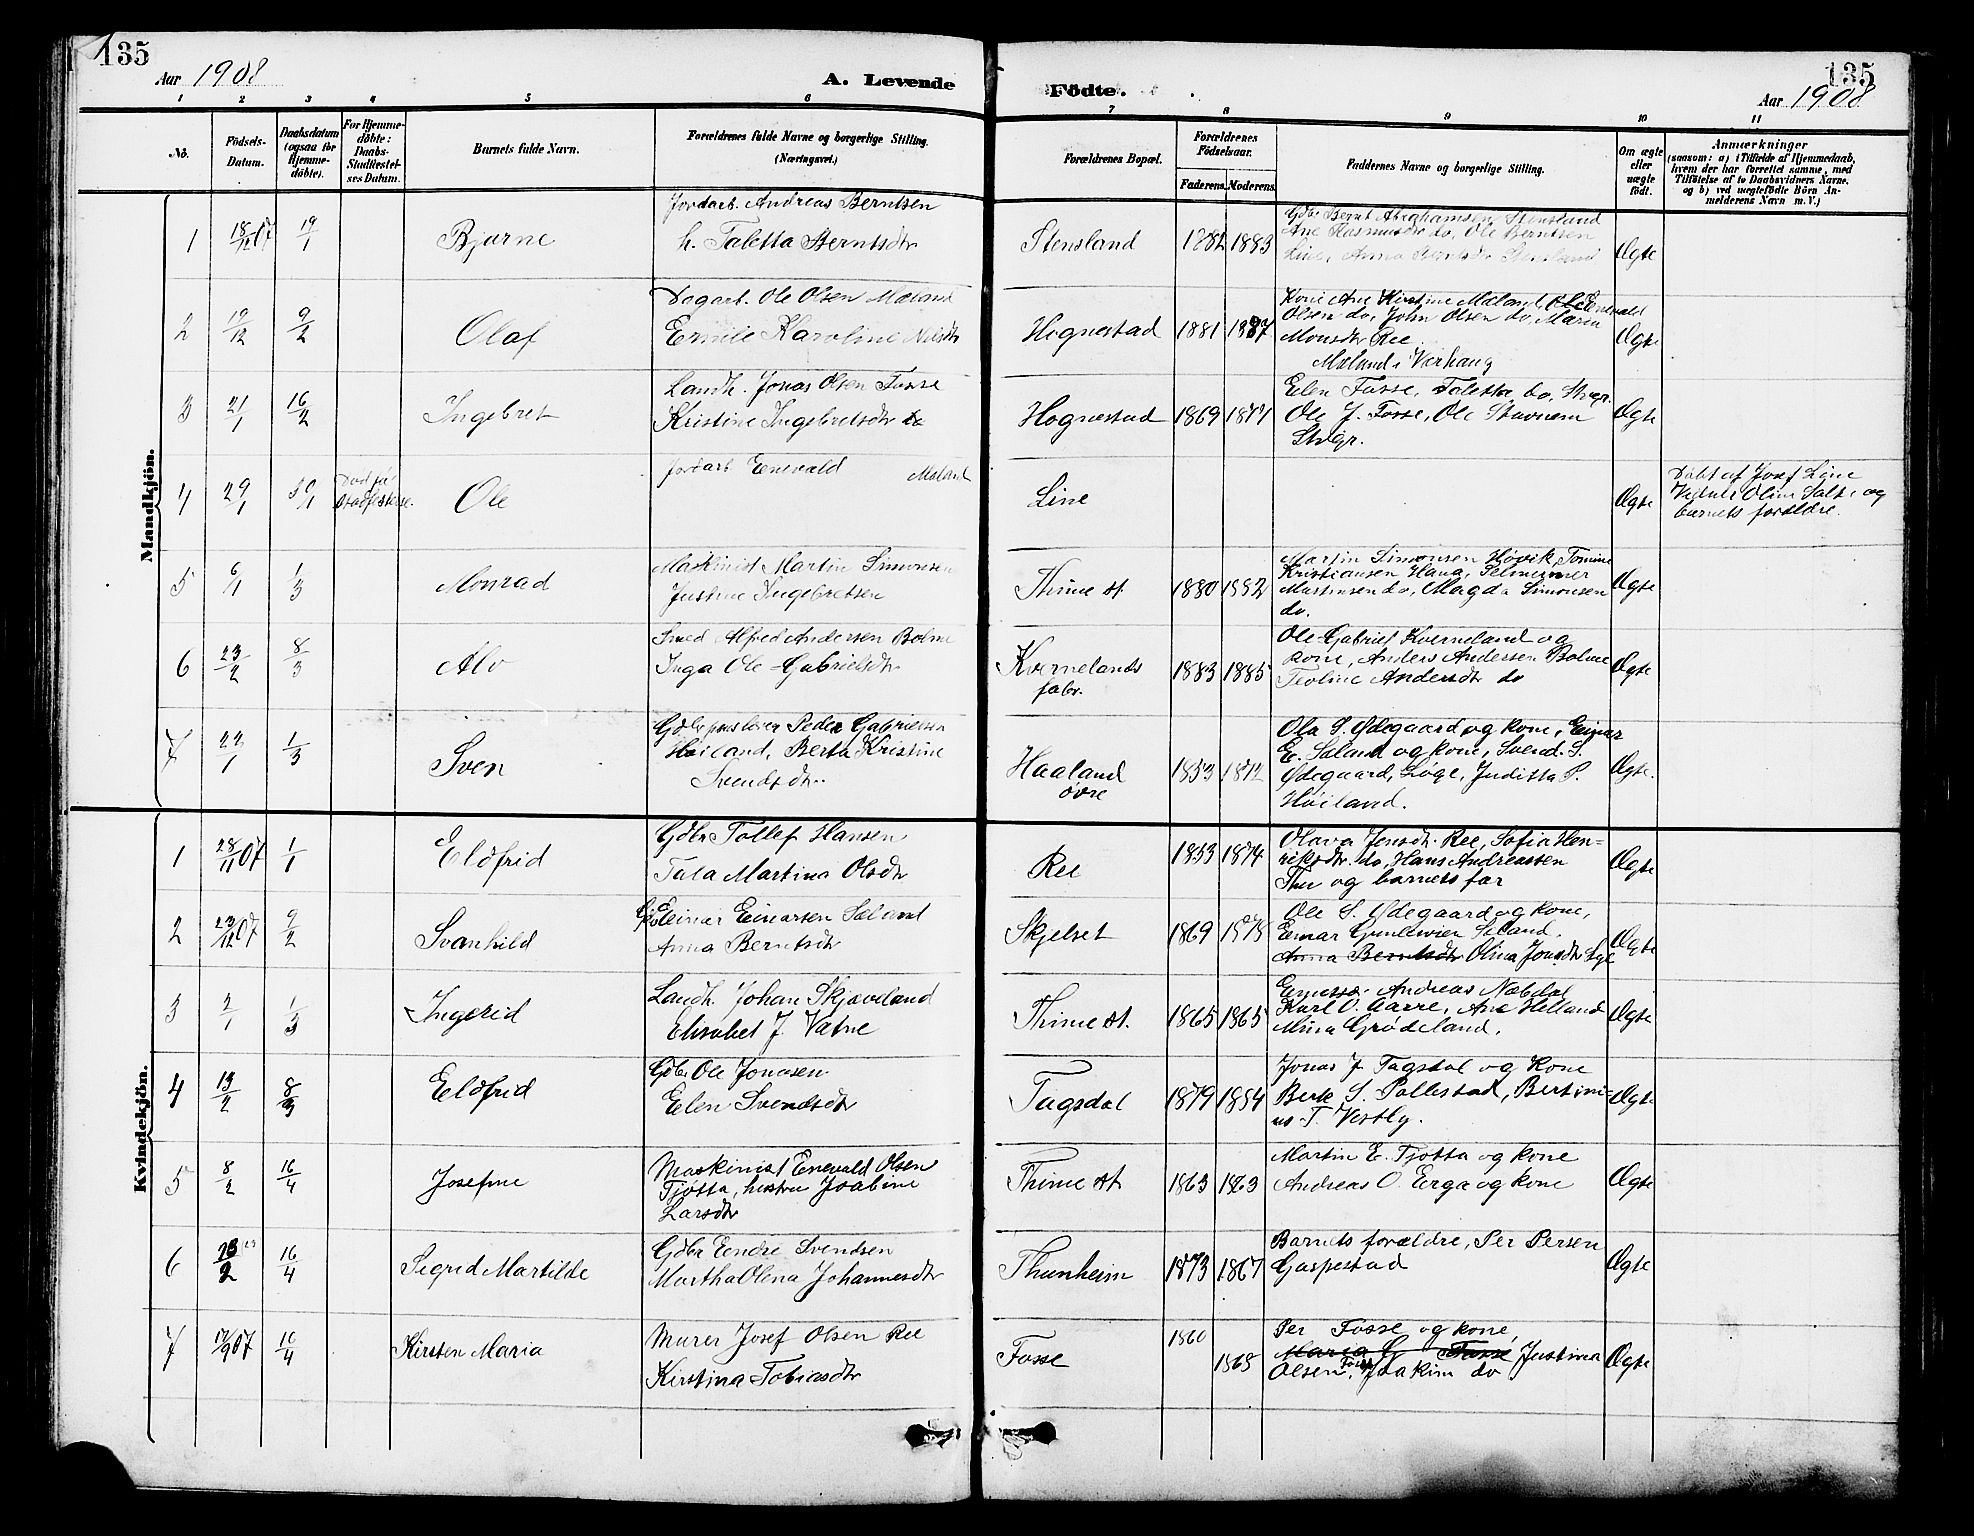 135
Aar 1908
A. Levende
Födte.
135
Aar 1908
1 2 3 4 5 6 7 8 9 10 11
No.
Födsels-Datum.
Daabsdatum (ogsaa for Hjemme-döbte).
For Hjemme-döbte: Daabs-Stadfæstel-ses Datum.
Barnets fulde Navn.
Forældrenes fulde Navne og borgerlige Stilling. (Næringsvei.)
Forældrenes Bopæl.
Forældrenes Födselsaar.
Faderens. Moderens.
Faddernes Navne og borgerlige Stilling.
Om ægte eller uægte födt.
Anmærkninger
(saasom: a) i Tilfælde af Hjemmedaab, hvem der har forrettet samme, med Tilföielse af to Daabsvidners Navne. og b) ved uægtefödte Börn An-melderens Navn m. V.)
Mandkjön.
1 18/12 07 19/1 Bjarne
Jordarb. Andreas Berntsen
h. Taletta Berntsdtr
Stensland 1882 1883
Gdbr Bernt Abrahamsen Stensland
Ane Rasmusdtr do, Ole Berntsen
Line, Anna Berntsdtr Stensland
Ægte
2 19/12 9/2 Olaf
Dagarb. Ole Olsen Mæland
Emilie Karoline Nilsdtr
Hognestad 1881 1887
Kone Ane Kirstine Mæland, Ole Enevald
Olsen do, John Olsen do, Maria
Monsdtr Ree
Mæland i Varhaug
Ægte
3 21/1 16/2 Ingebret
Landh. Jonas Olsen Fosse
Kristine Ingebretsdtr
Hognestad 1869 1877
Elen Fosse, Taletta do, Stvgr.
Ole J. Fosse, Ole Stavnem
Stvgr.
Ægte
4 29/1 30/1 Död før Stadfæstelse. Ole
Jordarb Enevald Mæland
Line
Ægte
Döbt af Josef Line
Vidner Oline Salte og
barnets forældre.
5 6/1 1/3 Monrad
Maskinist Martin Simonsen
Justine Ingebretsen
Thime st. 1880 1882
Martin Simonsen Høvik, Tomine
Kristiansen Haug, Selmer
Martinsen do, Magda Simonsen
do.
Ægte
6 23/2 8/3 Alv
Smed Alfred Andersen Bolme
Inga Ole-Gabrielsdtr
Kvernelands
fabr.
1883 1885
Ole Gabriel Kverneland og
kone, Anders Andersen Bolme
Teoline Andersdtr do
Ægte
7 22/1 1/3 Sven
Gdbr Peder Gabrielsen
Høiland, Berta Kristine
Svendsdtr.
Haaland
övre
1853 1872
Ola S. Ødegaard og kone, Einar
E. Sæland og kone, Svend S.
Ødegaard, Løge, Juditta P.
Høiland.
Ægte.
Kvindekjön.
1 28/11 07 1/1 Eldfrid
Gdbr Tollef Hansen
Tala Martina Olsdtr
Ree 1853 1874
Olava Jensdtr Ree, Sofia Hen-
riksdtr do, Hans Andreassen
Thu og barnets far
Ægte
2 23/12 07 9/2 Svanhild
Gdbr Einar Einarsen Sæland
Anna Berntsdtr
Skjelset 1869 1875
Ole S. Ødegaard og kone,
Einar Sæland.
Anna Berntsdtr Olina Jonsdtr Lye
Ægte
3 2/1 1/3 Ingerid
Landh. Johan Skjæveland
Elisabet J Vatne
Thime st. 1865 1865
Andreas Nøbdal
Karl O. Aarre, Ane Helland
Mina Grødeland.
Ægte
4 13/2 8/3 Eldfrid
Gdbr Ole Jonasen
Elen Svendsdtr
Tagsdal 1879 1884
Jonas J Tagsdal og kone
Berte S. Pollestad, Bertini-
us T. Vestly.
Ægte
5 8/2 16/4 Josefine
Maskinist Enevald Olsen
Tjøtta, hustru Joabine
Larsdtr
Thime st. 1863 1863
Martin E. Tjøtta og kone
Andreas O. Erga og kone
Ægte
6 23/2 16/4 Sigrid Martilde
Gdbr Endre Svendsen
Martha Olena Johannesdtr
Thunheim 1873 1867
Barnets forældre, Per Persen
Gaspestad
Ægte
7 17/9 07 16/4 Kirsten Maria
Murer Josef Olsen Ree
Kirstina Tobiasdtr
Fosse 1860 1865
Per Fosse og kone,
Maria G Fosse Justina
Olsen Fosse, Joakim do
Ægte